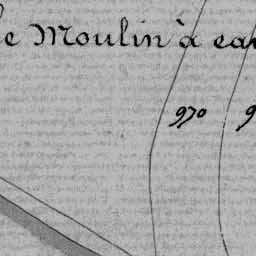 le Moulin à eau
970
9